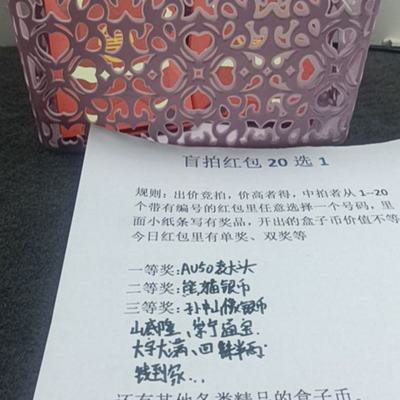 盲拍红包 20 选 1
规则：出价竞拍，价高者得，中拍者从 1--20
个带有编号的红包里任意选择一个号码，里
面小纸条写有奖品，开出的盒子币价值不等
今日红包里有单奖、双奖等
一等奖:AU50袁大头
二等奖:熊猫银币
三等奖:孙中山像银币
大字大满、回
钱到家...
还有其他各类精品的盒子币。